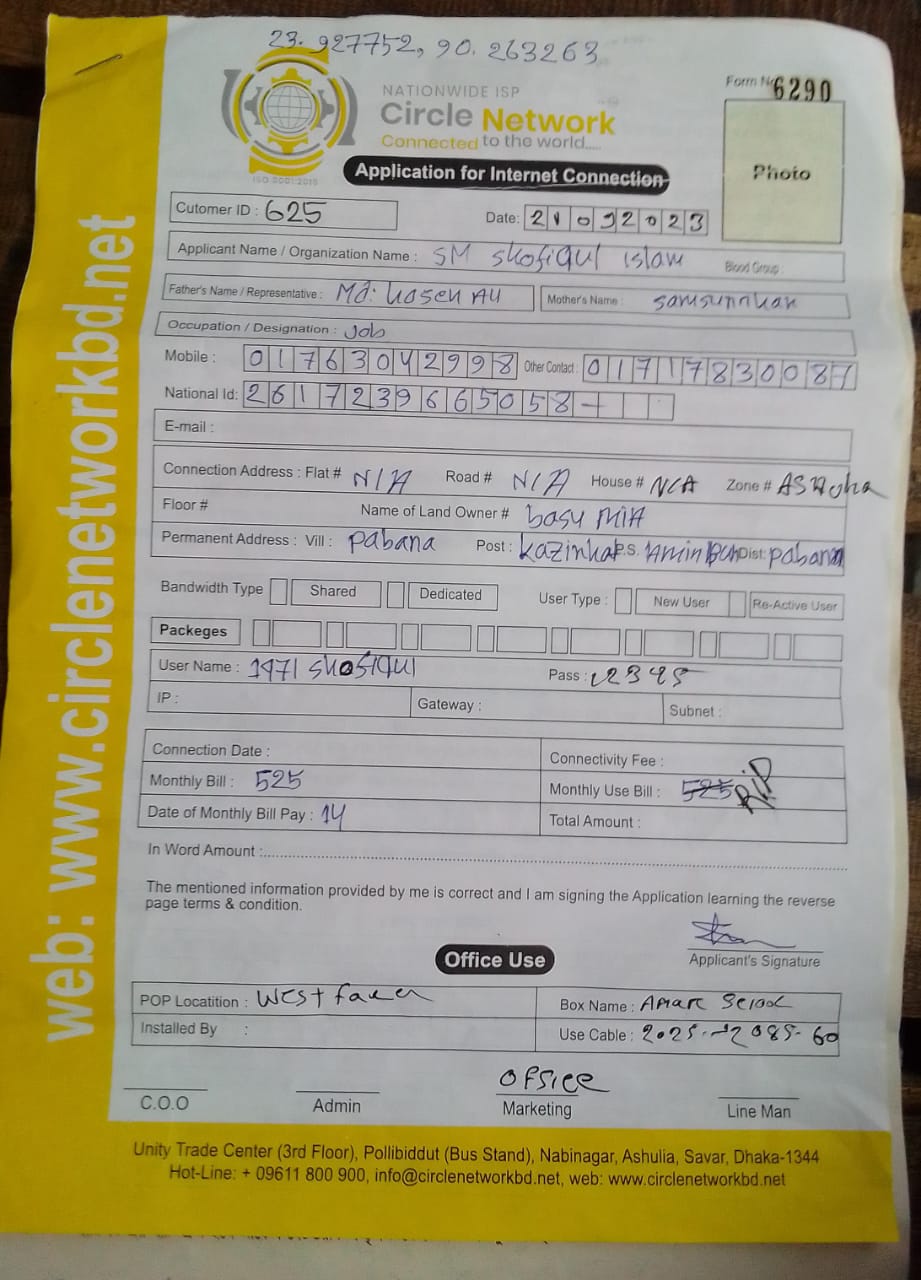 23.927752, 90.263263
NATIONWIDE ISP
Circle Network
Connected to the world.....
ISO 9001:2015
Form No 6290
Photo
Application for Internet Connection
Cutomer ID : 625
Date: 21092023
Applicant Name / Organization Name : SM Shofiqul islam Blood Group :
Father's Name / Representative : Md. hosen Ali Mother's Name : samsunnhar
Occupation / Designation : Job
Mobile : 01763042998 Other Contact : 01717830087
National Id: 2617239665058
E-mail :
Connection Address : Flat # N/A Road # N/A House # N/A Zone #
Floor # Name of Land Owner # basu MIA
Permanent Address : Vill : pabana Post : kazinhat P.S. Dist: pabana
Bandwidth Type Shared Dedicated User Type : New User Re-Active User
Packeges
User Name : 1971 shofiqul Pass : 12345
IP : Gateway : Subnet :
Connection Date : Connectivity Fee :
Monthly Bill : 525 Monthly Use Bill : 525
Date of Monthly Bill Pay : 14 Total Amount :
In Word Amount :
The mentioned information provided by me is correct and I am signing the Application learning the reverse
page terms & condition.
Applicant's Signature
Office Use
POP Locatition : West Box Name :
Installed By : Use Cable :
office
C.O.O Admin Marketing Line Man
Unity Trade Center (3rd Floor), Pollibiddut (Bus Stand), Nabinagar, Ashulia, Savar, Dhaka-1344
Hot-Line: + 09611 800 900, info@circlenetworkbd.net, web: www.circlenetworkbd.net
web: www.circlenetworkbd.net